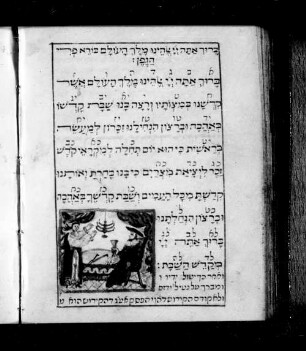 ברוך אתה יי אלהינו מלך העולם בורא פרי
הגפן:
ברוך אתה יי אלהינו מלך העולם אשר
קדשנו במצותיו ורצה בנו שבת קדשו
באהבה וברצון הנחילנו זכרון למעשה
בראשית כי הוא יום תחלה למקראי קדש
זכר ליציאת מצרים כי בנו בחרת ואותנו
קדשת מכל העמים ושבת קדשך באהבה
וברצון הנחלתנו
ברוך אתה יי
מקדש השבת: